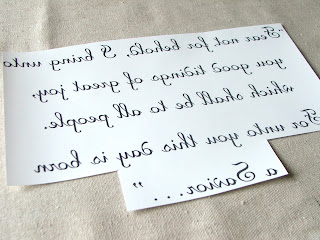 "Fear not for behold, I bring unto
you good tidings of great joy,
which shall be to all people.
For unto you this day is born
a Savior..."